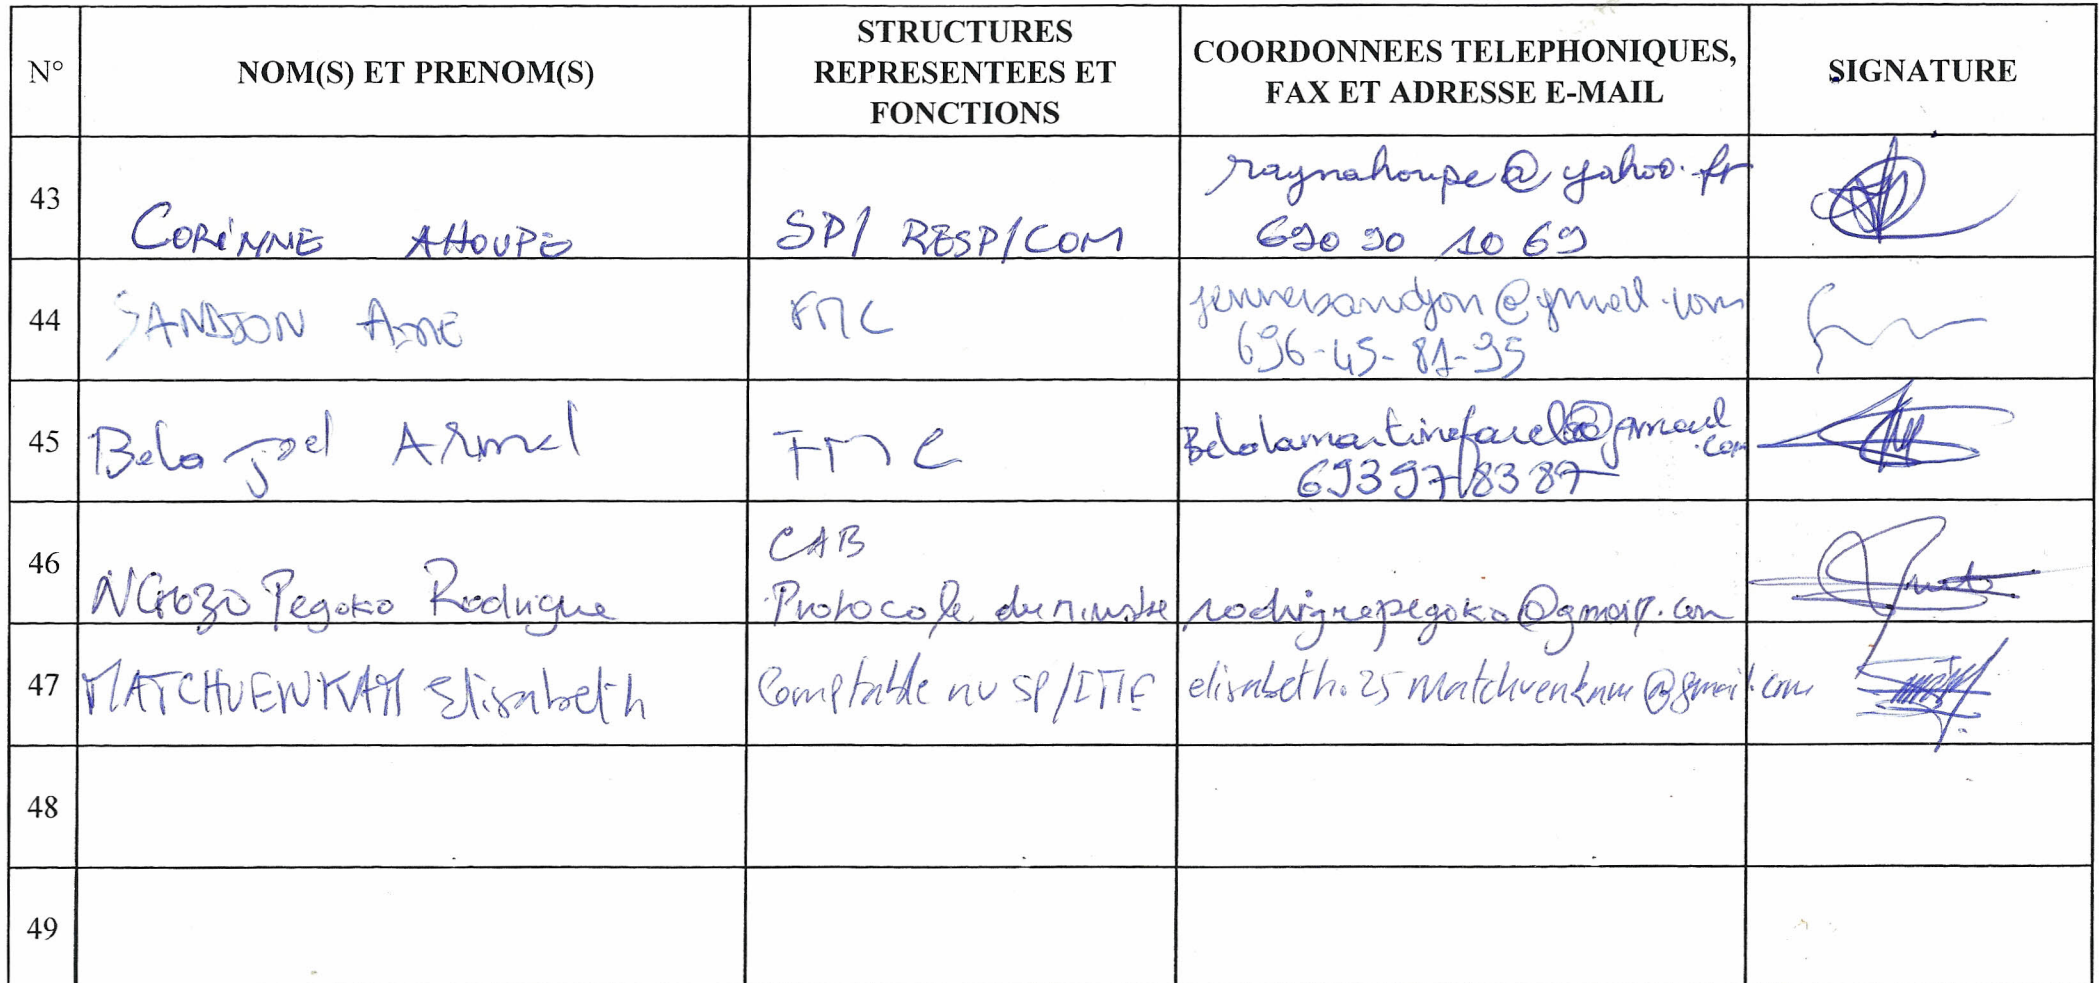 N°
NOM(S) ET PRENOM(S)
STRUCTURES
REPRESENTEES ET
FONCTIONS
COORDONNEES TELEPHONIQUES,
FAX ET ADRESSE E-MAIL
SIGNATURE
43
CORINNE AHOUPE
SP/ RESP/COM
raynahoupe@yahoo.fr
690 90 10 69
44
SANDJON AIME
FMC
jennersandjon@gmail.com
696-45-81-95
45
Bela Joel Armel
FMC
Belalamartinefarel@gmail
.com
693 97 83 87
46
Pegoko Rodrigue
CAB
Protocole du ministre
rodriguepegoko@gmail.com
47
MATCHUENKAM Elisabeth
Comptable au SP/ITIE
elisabeth.25matchuenkam@gmail.com
48
49